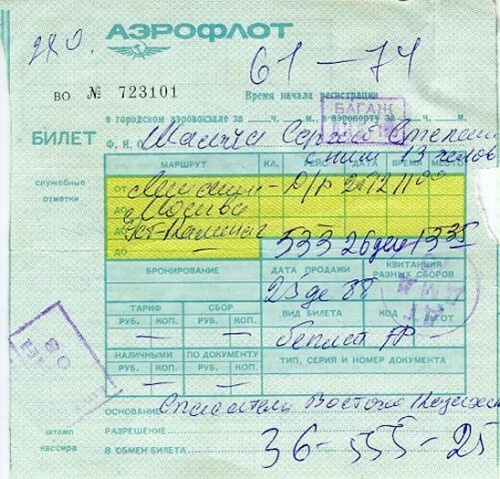 АЭРОФЛОТ
61-74
ВО № 723101
Время начала регистрации
в городском аэровокзале за ч. м. в аэропорту за ч. м.
БАГАЖ
БИЛЕТ
Ф. И. О. Сергей Степан
с ним 13 челов
МАРШРУТ КЛ. РЕЙС ДАТА ВРЕМЯ МЕСТО
служебные отметки
ОТ 26 12 11 00
ДО Москва
ДО Усть-Каменог 533 26 дек 13 35
ДО
БРОНИРОВАНИЕ ДАТА ПРОДАЖИ КВИТАНЦИЯ РАЗНЫХ СБОРОВ
25 де 88
ТАРИФ СБОР ВИД БИЛЕТА КОД
РУБ. КОП. РУБ. КОП.
— — — — беплат —
НАЛИЧНЫМИ ПО ДОКУМЕНТУ ТИП, СЕРИЯ И НОМЕР ДОКУМЕНТА
РУБ. КОП. РУБ. КОП.
— — — —
ОСНОВАНИЕ Спасатели Восточно
штамп кассира
РАЗРЕШЕНИЕ
В ОБМЕН БИЛЕТА 36-555-25